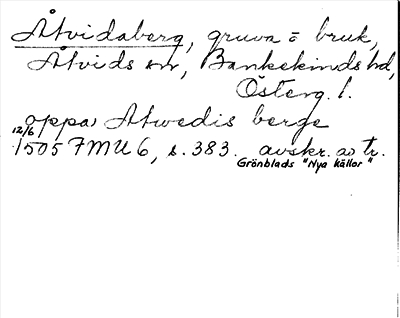 Åtvidaberg, gruva o bruk,
Åtvids sn, Bankekinds hd,
Österg. l.
oppa Atwedis berge
12/6 1505 FMU 6, s. 383. avskr. av tr.
Grönblads "Nya källor"